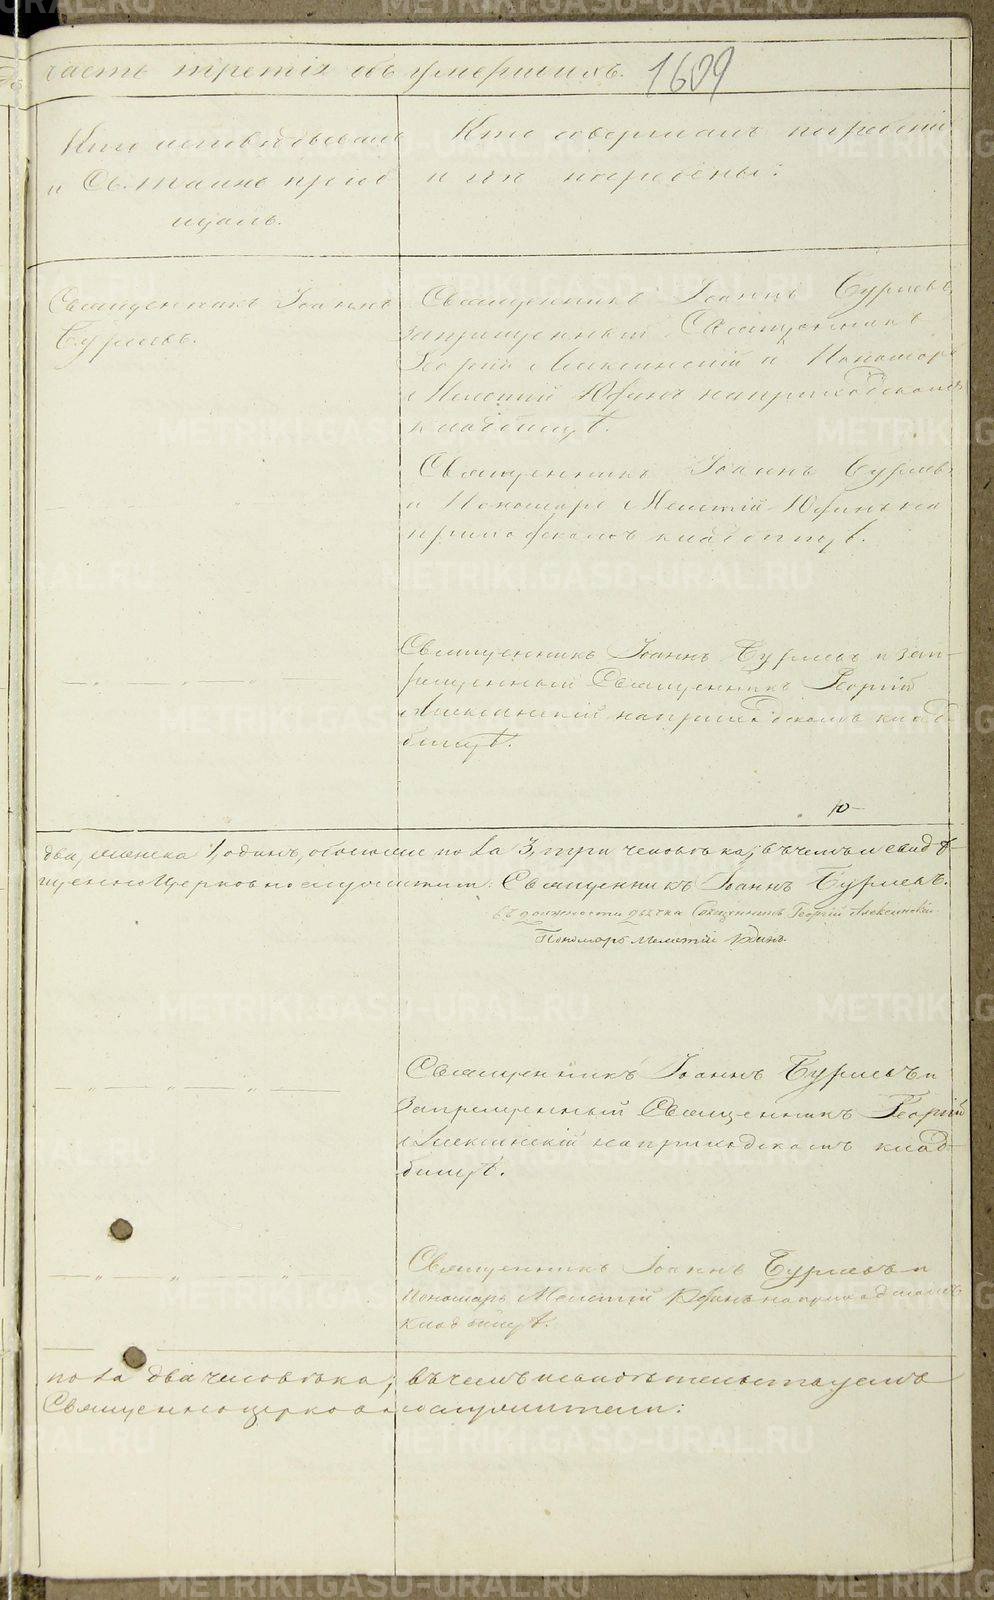 часть третія объ умершихъ. 1609
Кто исповѣдывалъ
и Св. таинъ пріоб
щалъ.
Кто совершалъ погребеніе
и гдѣ погребены:
Священникъ Іоаннъ
Бурлевъ.
Священникъ Іоаннъ Бурлевъ,
запрещенный Священникъ
Георгій Алексинскій и Пономарь
Мелетій Юдинъ на приходскомъ
кладбищѣ.
Священникъ Іоаннъ Бурлевъ
и Пономарь Мелетій Юдинъ на
приходскомъ кладбищѣ.
Священникъ Іоаннъ Бурлевъ и зап-
рещенный Священникъ Георгій
Алексинскій на приходскомъ клад-
бищѣ.
два, женска 1, одинъ, обоего пола 3, три человѣка, въ чемъ и свидѣ-
Священникъ Іоаннъ Бурлевъ.
въ должности дьячка Священникъ Георгій Алексинскій
Пономарь Мелетій Юдинъ.
Священникъ Іоаннъ Бурлевъ и
запрещенный Священникъ Георгій
Алексинскій на приходскомъ клад-
бищѣ.
Священникъ Іоаннъ Бурлевъ и
Пономарь Мелетій Юдинъ на приходскомъ
кладбищѣ.
пола два человѣка; въ чемъ и свидѣтельствуемъ
Священноцерковнослужители:
METRIKI.GASO-URAL.RU